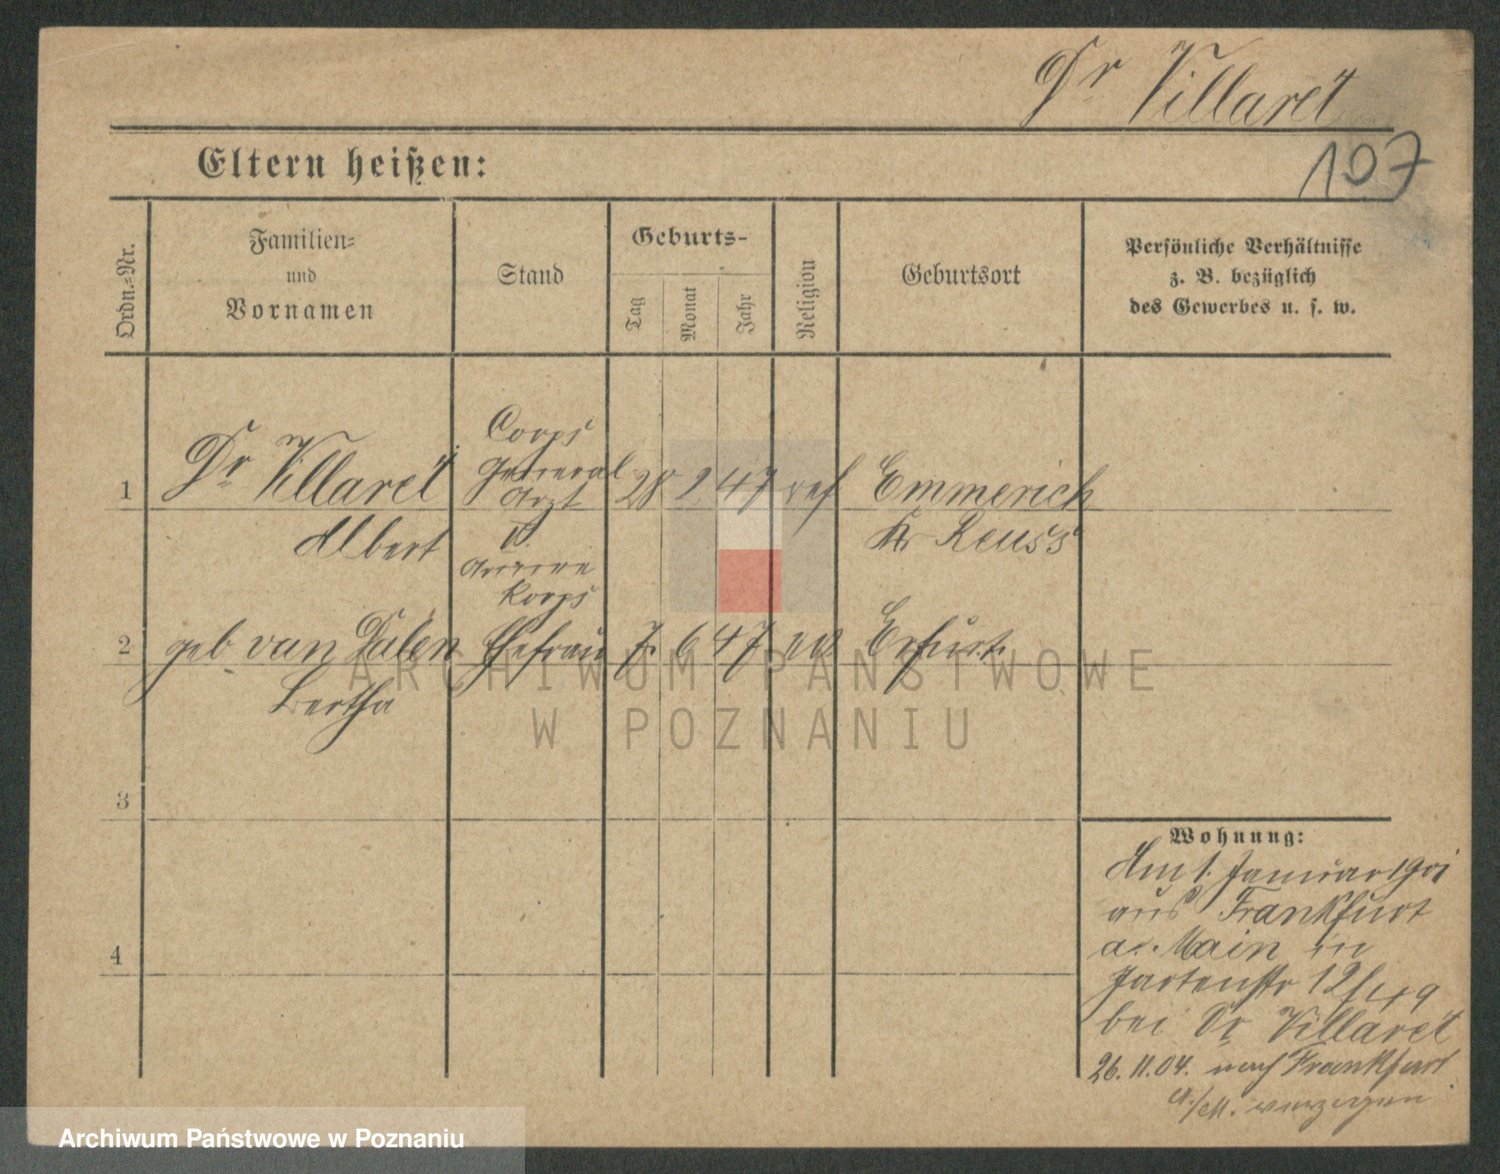 Dr Villaret
107
Eltern heißen:
Ordn.-Nr.
Familien-
und
Vornamen
Stand
Geburts-
Tag
Monat
Jahr
Religion
Geburtsort
Persönliche Verhältnisse
z. B. bezüglich
des Gewerbes u. s. w.
1
Dr Villaret
Albert
Corps
General
Arzt
v.
Armee
Korps
28 2 47 ref
Emmerich
Kr Reuss
2
geb van Dalen
Bertha
Ehefrau
7. 6 47
Erfurt.
3
4
Wohnung:
Am 1. Januar 1901
aus Frankfurt
a. Main in
Gartenstr 12
bei Dr Villaret
26.11.04. nach Frankfurt
a./M. verzogen
ARCHIWUM PAŃSTWOWE
W POZNANIU
Archiwum Państwowe w Poznaniu